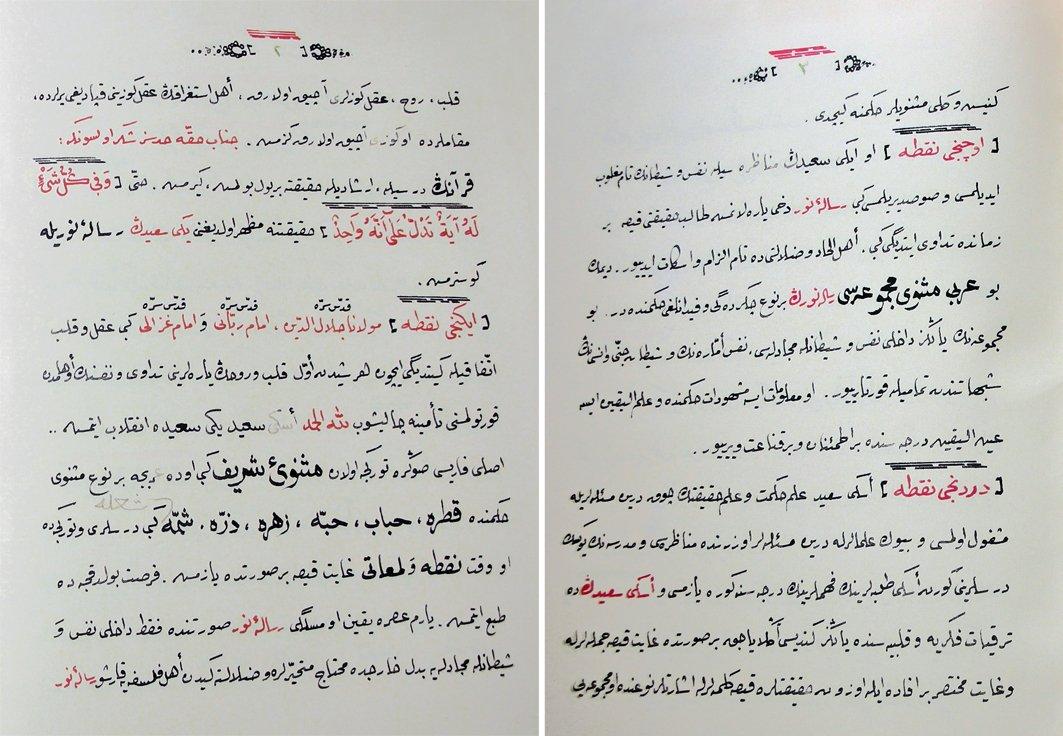 [ ٢ ]
قلب ، روح ، عقل کوزلری آچیق اولارق ، أهل استغراقڭ عقل کوزینی قپادیغی یرلرده ،
مقاملرده او کوزی آچیق اولارق کزمش . جناب حقّه حدسز شکر اولسونکه :
قرآنڭ درسیله ، ارشادیله حقیقته بر یول بولمش ، کیرمش . حتّی [ وَفِي كُلِّ شَيْءٍ
لَهُ آيَةٌ تَدُلُّ عَلَى أَنَّهُ وَاحِدٌ ] حقیقتنه مظهر اولدیغنی یکی سعیدڭ رسالهٔ نوریله
کوسترمش .
قدّس سرّه قدّس سرّه قدّس سرّه
[ ایکنجی نقطه ] مولانا جلال الدّین ، امام ربّانی و امام غزالی کبی عقل و قلب
اتّفاقیله کیتدیگی ایچون هر شیدن أوّل قلب و روحڭ یاره‌لرینی تداوی و نفسڭ أوهامدن
قورتولمسنی تأمینه چالیشوب لله الحمد أسکی سعید یکی سعیده انقلاب ایتمش ..
اصلی فارسی صوڭره تورکجه اولان مثنوئ شریف کبی او ده عربجه بر نوع مثنوی
شعله
حکمنده قطره ، حباب ، حبّه ، زهره ، ذرّه ، شمّه کبی درسلری و تورکجه‌ده
او وقت نقطه و لمعاتی غایت قیصه بر صورتده یازمش . فرصت بولدقجه ده
طبع ایتمش . یارم عصره یقین او مسلگی رسالهٔ نور صورتنده فقط داخلی نفس و
شیطانله مجادله‌یه بدل خارجده محتاج متحیّرلره و ضلالته کیدن أهل فلسفه‌یه قارشو رسالهٔ نور
[ ٣ ]
کنیش و کلّی مثنویلر حکمنه کچدی .
[ اوچنجی نقطه ] او ایکی سعیدڭ مناظره‌سیله نفس و شیطانڭ تام مغلوب
ایدیلمسی و صوصدیریلمسی کبی رسالهٔ نور دخی یاره‌لانمش طالب حقیقتی قیصه بر
زمانده تداوی ایتدیگی کبی . أهل الحاد و ضلالتی ده تام الزام و اسکات ایدییور .. دیمك
بو عربی مثنوی مجموعه‌سی رسالهٔ نورڭ بر نوع چکردگی و فیدانلغی حکمنده‌در . بو
مجموعه‌نڭ یالڭز داخلی نفس و شیطانله مجادله‌سی ، نفس أمّاره‌نڭ و شیطان جنّی و انسینڭ
شبهاتندن تمامیله قورتارییور . او معلومات ایسه مشهودات حکمنده و علم الیقین ایسه
عین الیقین درجه‌سنده بر اطمئنان و بر قناعت ویرییور .
[ دردنجی نقطه ] أسکی سعید علم حکمت و علم حقیقتڭ چوق درین مسئله‌لریله
مشغول اولمسی و بیوك علمالرله درین مسئله‌لر اوزرنده مناظره‌سی و مدرسه‌نڭ یوکسك
درسلرینی کورن أسکی طلبه‌لرینڭ فهملرینڭ درجه‌سنه کوره یازمسی و أسکی سعیدڭ ده
ترقیات فکریه و قلبیه‌سنده یالڭز کندیسی آڭلایاجق بر صورتده غایت قیصه جمله‌لرله
و غایت مختصر بر افاده ایله اوزون حقیقتلره قیصه کلمه‌لرله اشارتلر نوعنده او مجموعه‌یی